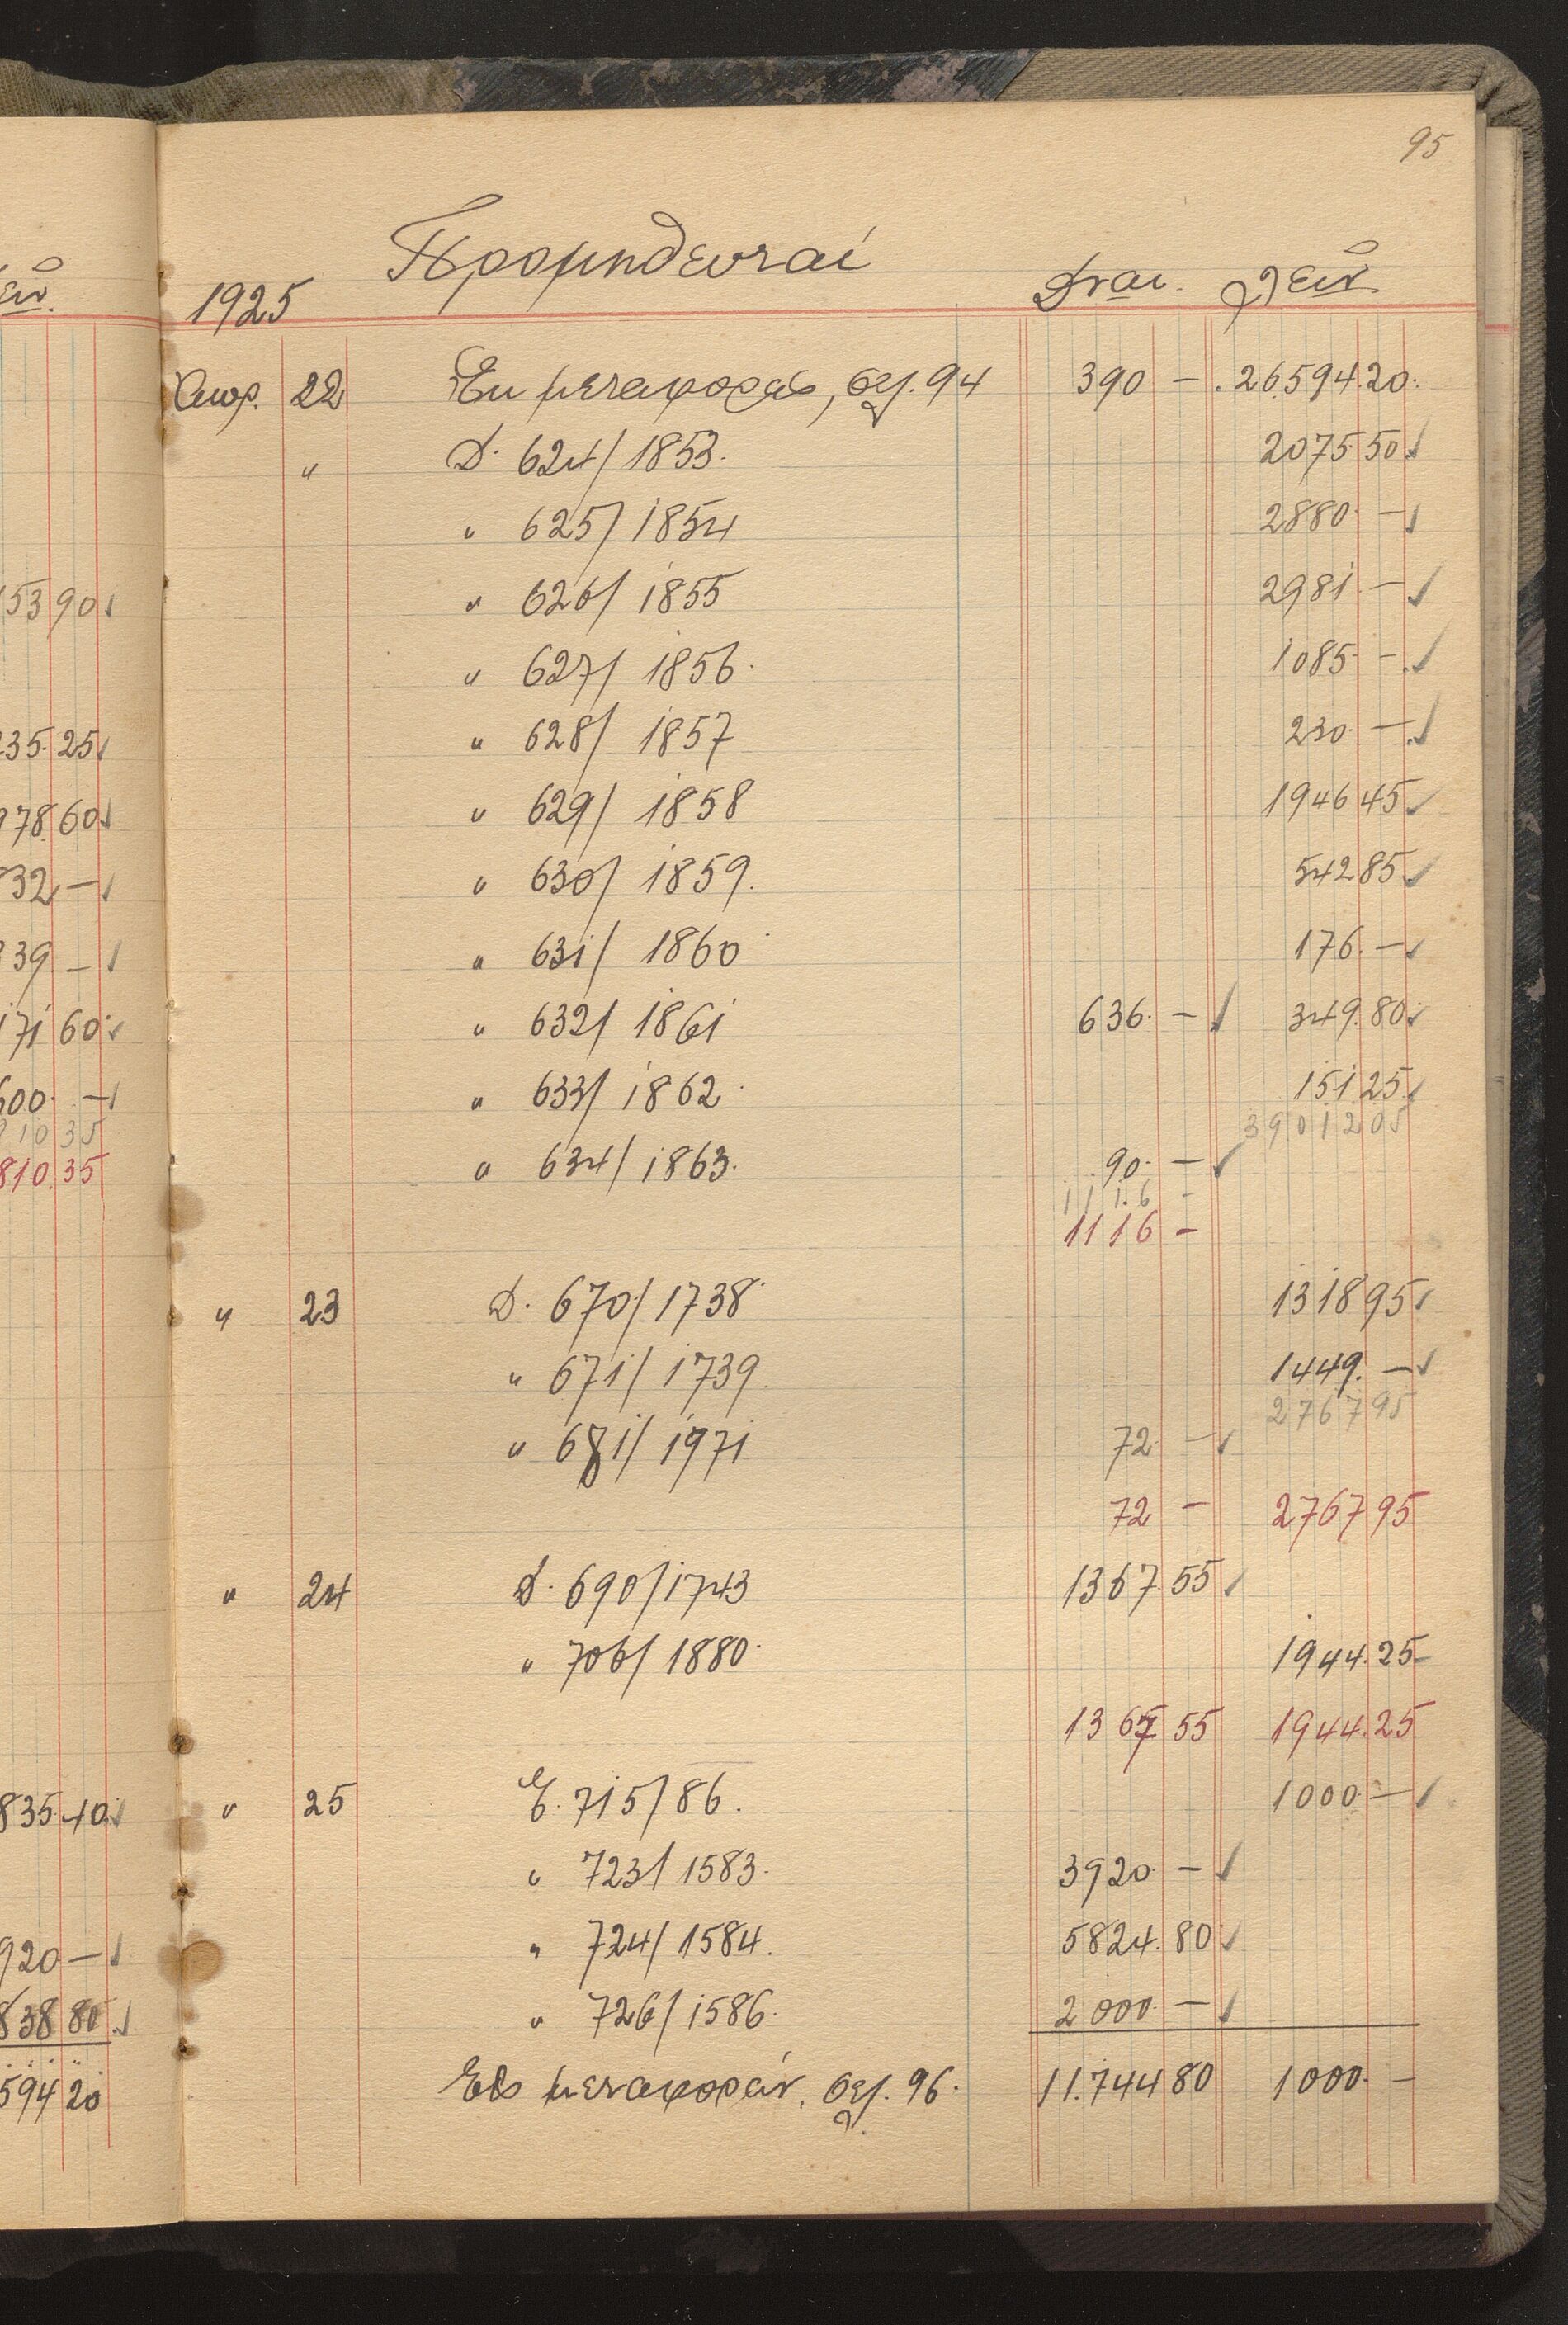 95
Προμηθευταί
1925 Δναι. Λειν
Απρ. 22 Εκ μεταφοράς, σελ. 94 390 — 26.594.20
" Δ. 624/1853. 2075.50 ✓
" 625/1854 2880 — ✓
" 626/1855 2981 — ✓
" 627/1856. 1085 — ✓
" 628/1857 230 — ✓
" 629/1858 1946 45 ✓
" 630/1859. 542 85 ✓
" 631/1860 176. — ✓
" 632/1861 636. — ✓ 349.80 ✓
" 633/1862. 151 25 ✓
39012 05
" 634/1863. 90. — ✓
1116 —
1116 —
" 23 Δ. 670/1738 1318 95 ✓
" 671/1739 1449. — ✓
2767 95
" 681/1971 72 — ✓
72 — 2767 95
" 24 Δ. 690/1743 1367 55 ✓
" 706/1880. 1944.25
1367 55 1944.25
" 25 Ε. 715/86. 1000 — ✓
" 723/1583. 3920 — ✓
" 724/1584. 5824.80 ✓
" 726/1586. 2000 — ✓
Εις μεταφοράν, σελ. 96. 11.744 80 1000 —
53 90 ✓
235.25 ✓
978.60 ✓
832 — ✓
39 — ✓
171 60 ✓
600 — ✓
10 35
810.35
835.40 ✓
920 — ✓
838 80 ✓
594 20